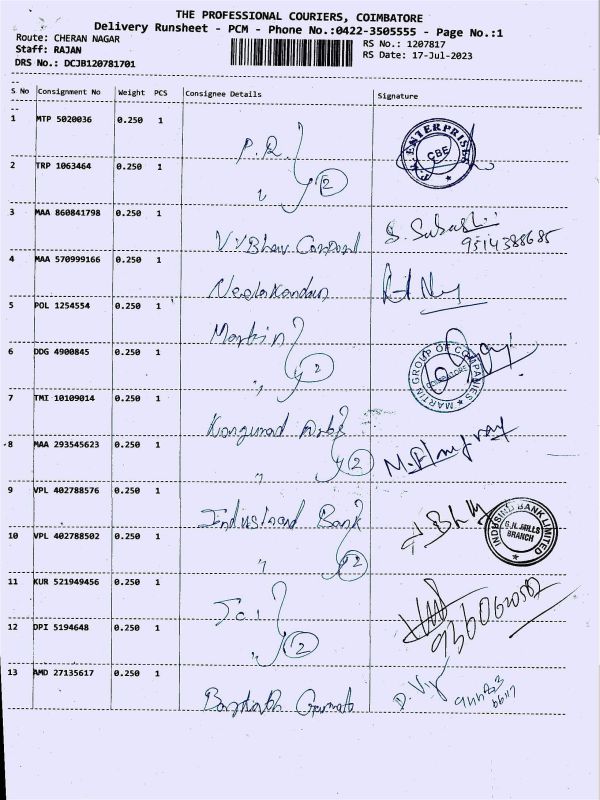 THE PROFESSIONAL COURIERS, COIMBATORE
Delivery Runsheet - PCM - Phone No.:0422-3505555 - Page No.:1
Route: CHERAN NAGAR
RS No.: 1207817
Staff: RAJAN
RS Date: 17-Jul-2023
DRS No.: DCJB120781701
S No Consignment No Weight PCS Consignee Details Signature
1 MTP 5020036 0.250 1 P.R.
ENTERPRISES CBE
2 TRP 1063464 0.250 1 " 2
3 MAA 860841798 0.250 1
9514388685
4 MAA 570999166 0.250 1 Neelakandan
5 POL 1254554 0.250 1 Martin
6 DDG 4900845 0.250 1 " 2
MARTIN GROUP OF COMPANIES COIMBATORE
7 TMI 10109014 0.250 1
8 MAA 293545623 0.250 1 " 2
9 VPL 402788576 0.250 1 Bank
INDUSIND BANK LIMITED G.N. MILLS BRANCH
10 VPL 402788502 0.250 1 " 2
11 KUR 521949456 0.250 1
12 DPI 5194648 0.250 1 " 2
13 AMD 27135617 0.250 1